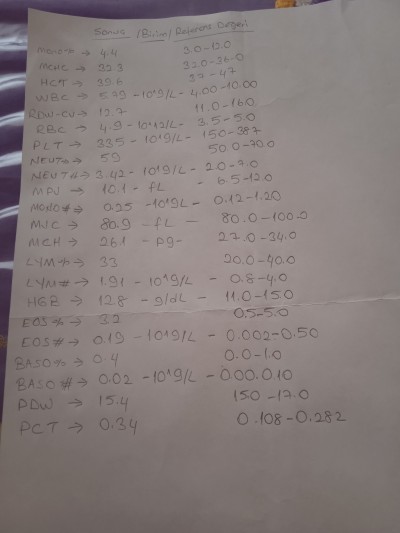 Sonuç /Birim/ Referans Değeri
MONO% → 4.4 3.0-12.0
MCHC → 32.3 32.0-36.0
HCT → 39.6 37-47
WBC → 5.79 -10^9/L - 4.00-10.00
RDW-CV → 12.7 11.0-16.0
RBC → 4.9 -10^12/L - 3.5-5.0
PLT → 335 -10^9/L - 150-387
NEUT% → 59 50.0-70.0
NEUT# → 3.42 -10^9/L - 2.0-7.0
MPV → 10.1 - fL - 6.5-12.0
MONO# → 0.25 -10^9/L - 0.12-1.20
MVC → 80.9 - fL - 80.0-100.0
MCH → 26.1 - pg- 27.0-34.0
LYM% → 33 20.0-40.0
LYM# → 1.91 -10^9/L - 0.8-4.0
HGB → 12.8 - g/dL - 11.0-15.0
EOS% → 3.2 0.5-5.0
EOS# → 0.19 -10^9/L - 0.002-0.50
BASO% → 0.4 0.0-1.0
BASO# → 0.02 -10^9/L - 000.010
PDW → 15.4 150-17.0
PCT → 0.34 0.108-0.282